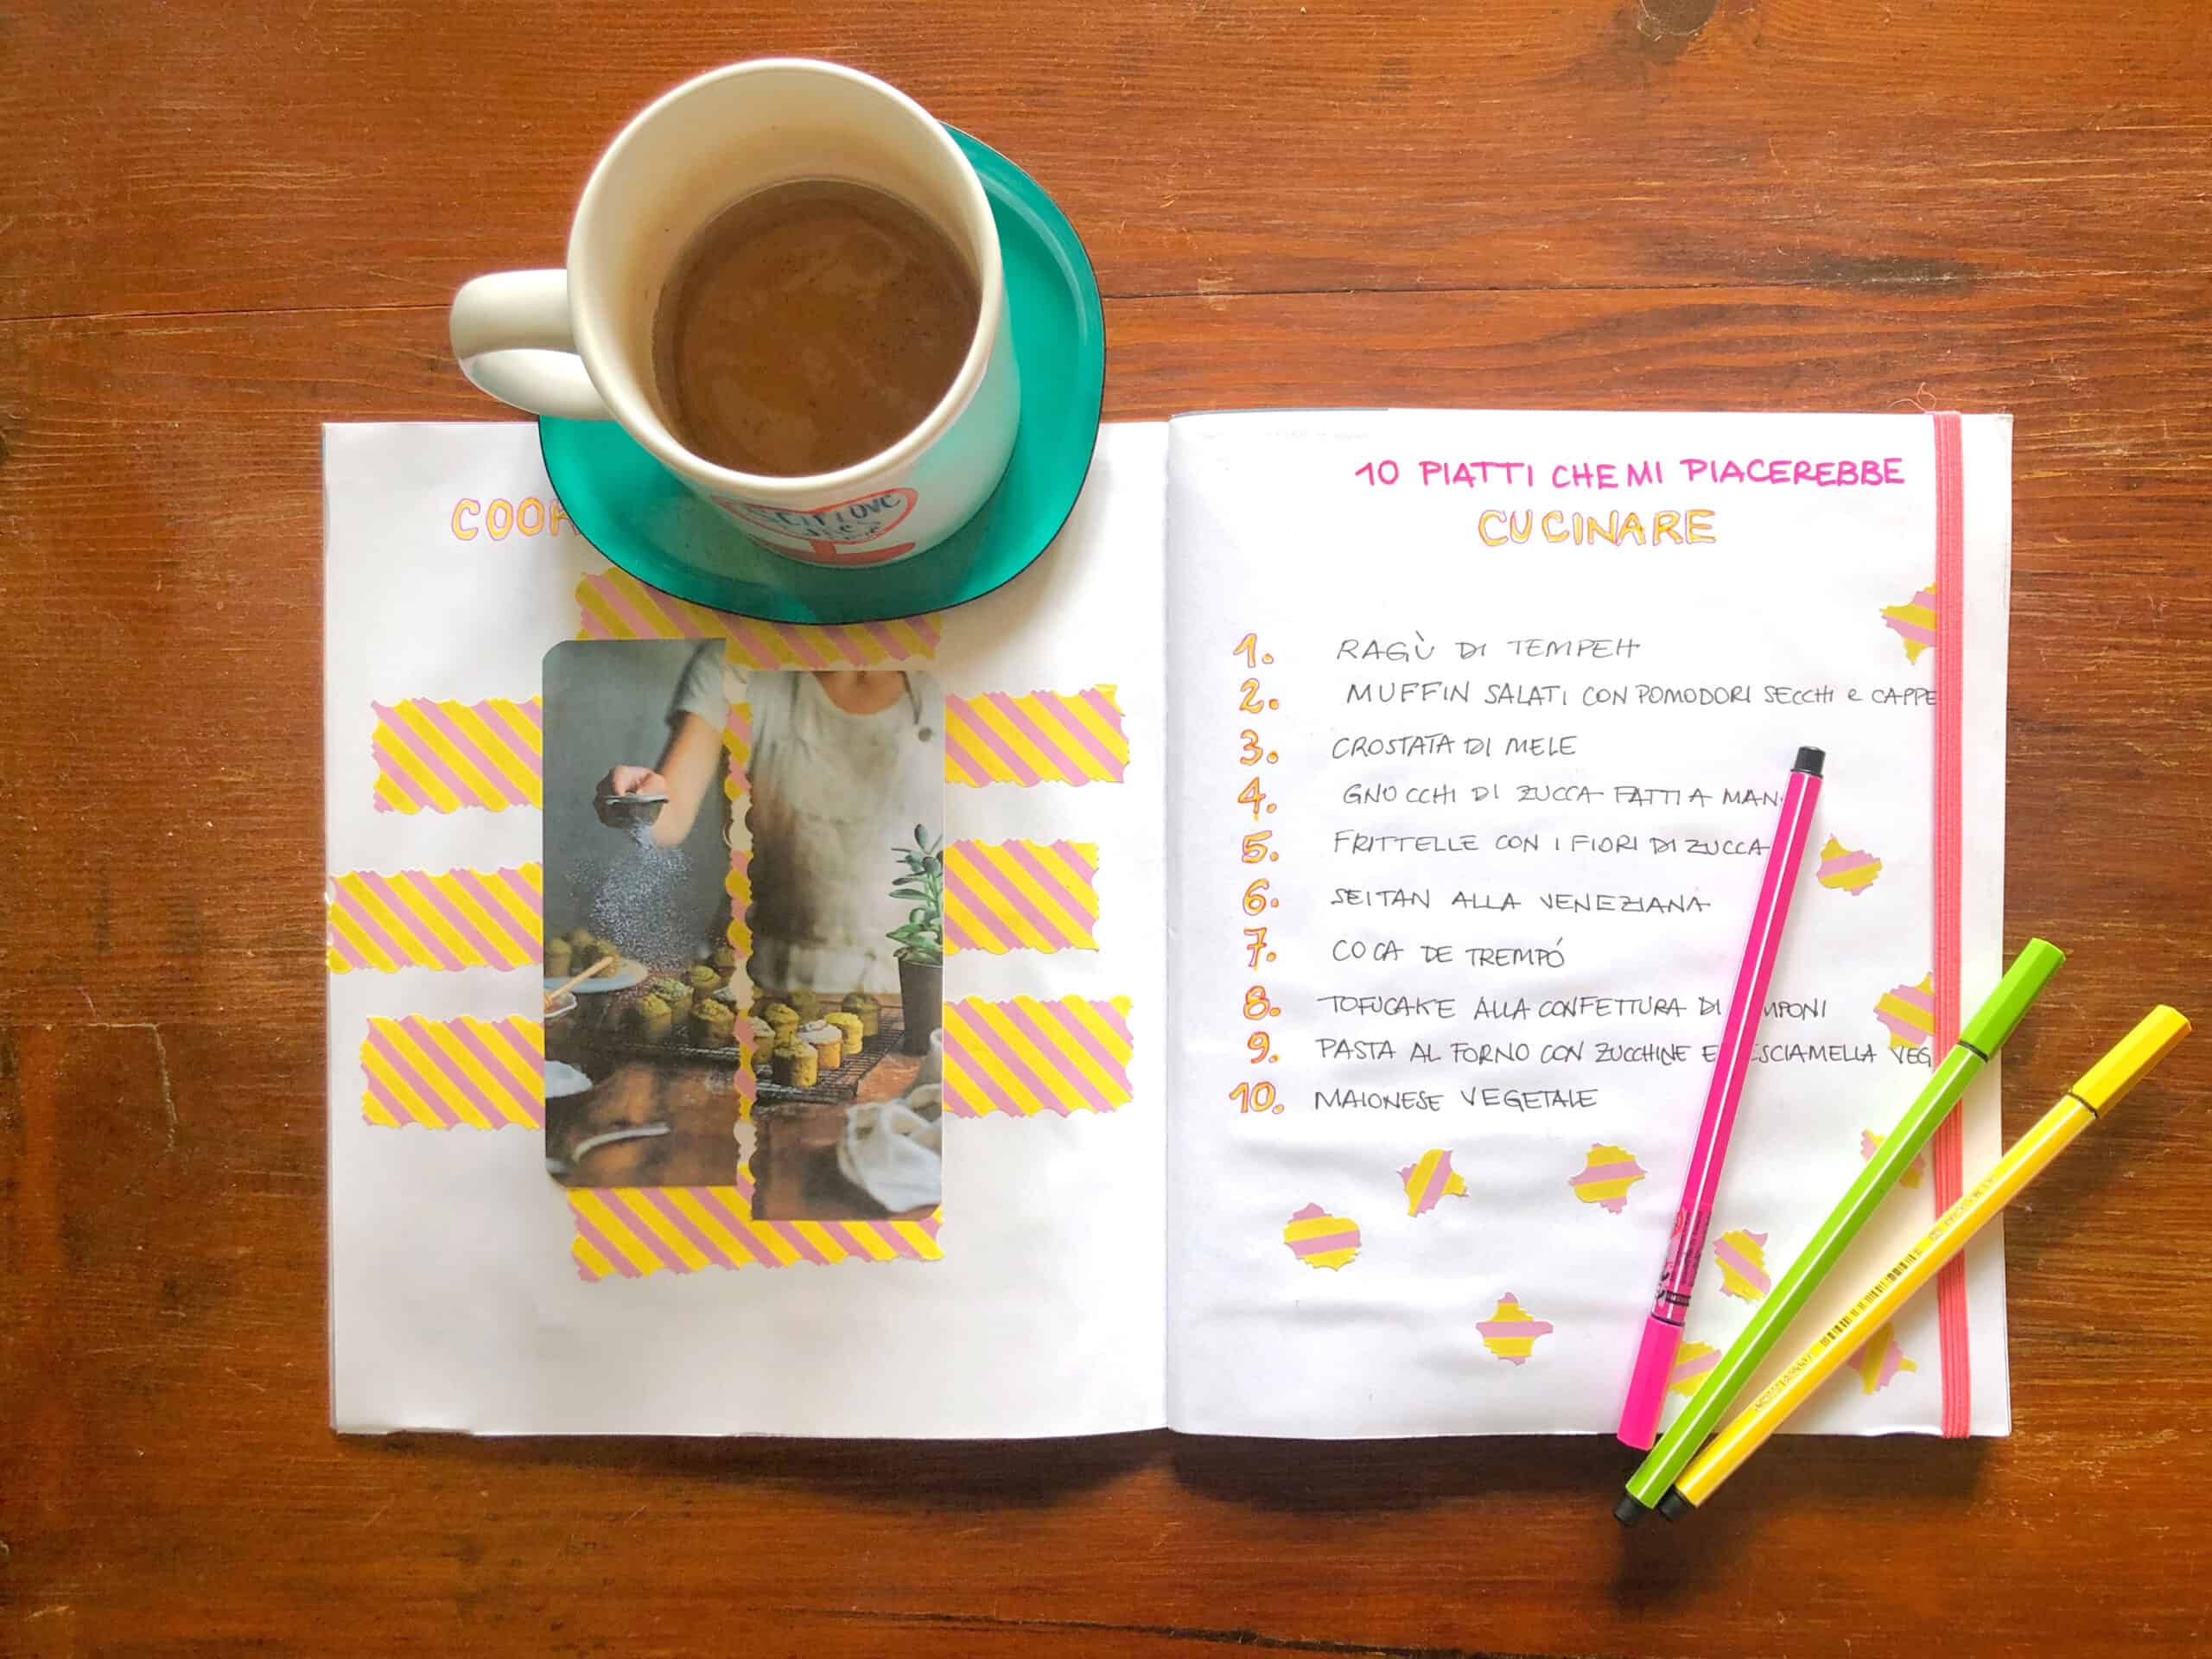 COOK
10 PIATTI CHE MI PIACEREBBE
CUCINARE
1. RAGÙ DI TEMPEH
2. MUFFIN SALATI CON POMODORI SECCHI e CAPPE
3. CROSTATA DI MELE
4. GNOCCHI DI ZUCCA FATTI A MAN
5. FRITTELLE CON I FIORI DI ZUCCA
6. SEITAN ALLA VENEZIANA
7. COCA DE TREMPÓ
8. TOFUCAKE ALLA CONFETTURA DI MPONI
9. PASTA AL FORNO CON ZUCCHINE E ESCIAMELLA VEG
10. MAIONESE VEGETALE